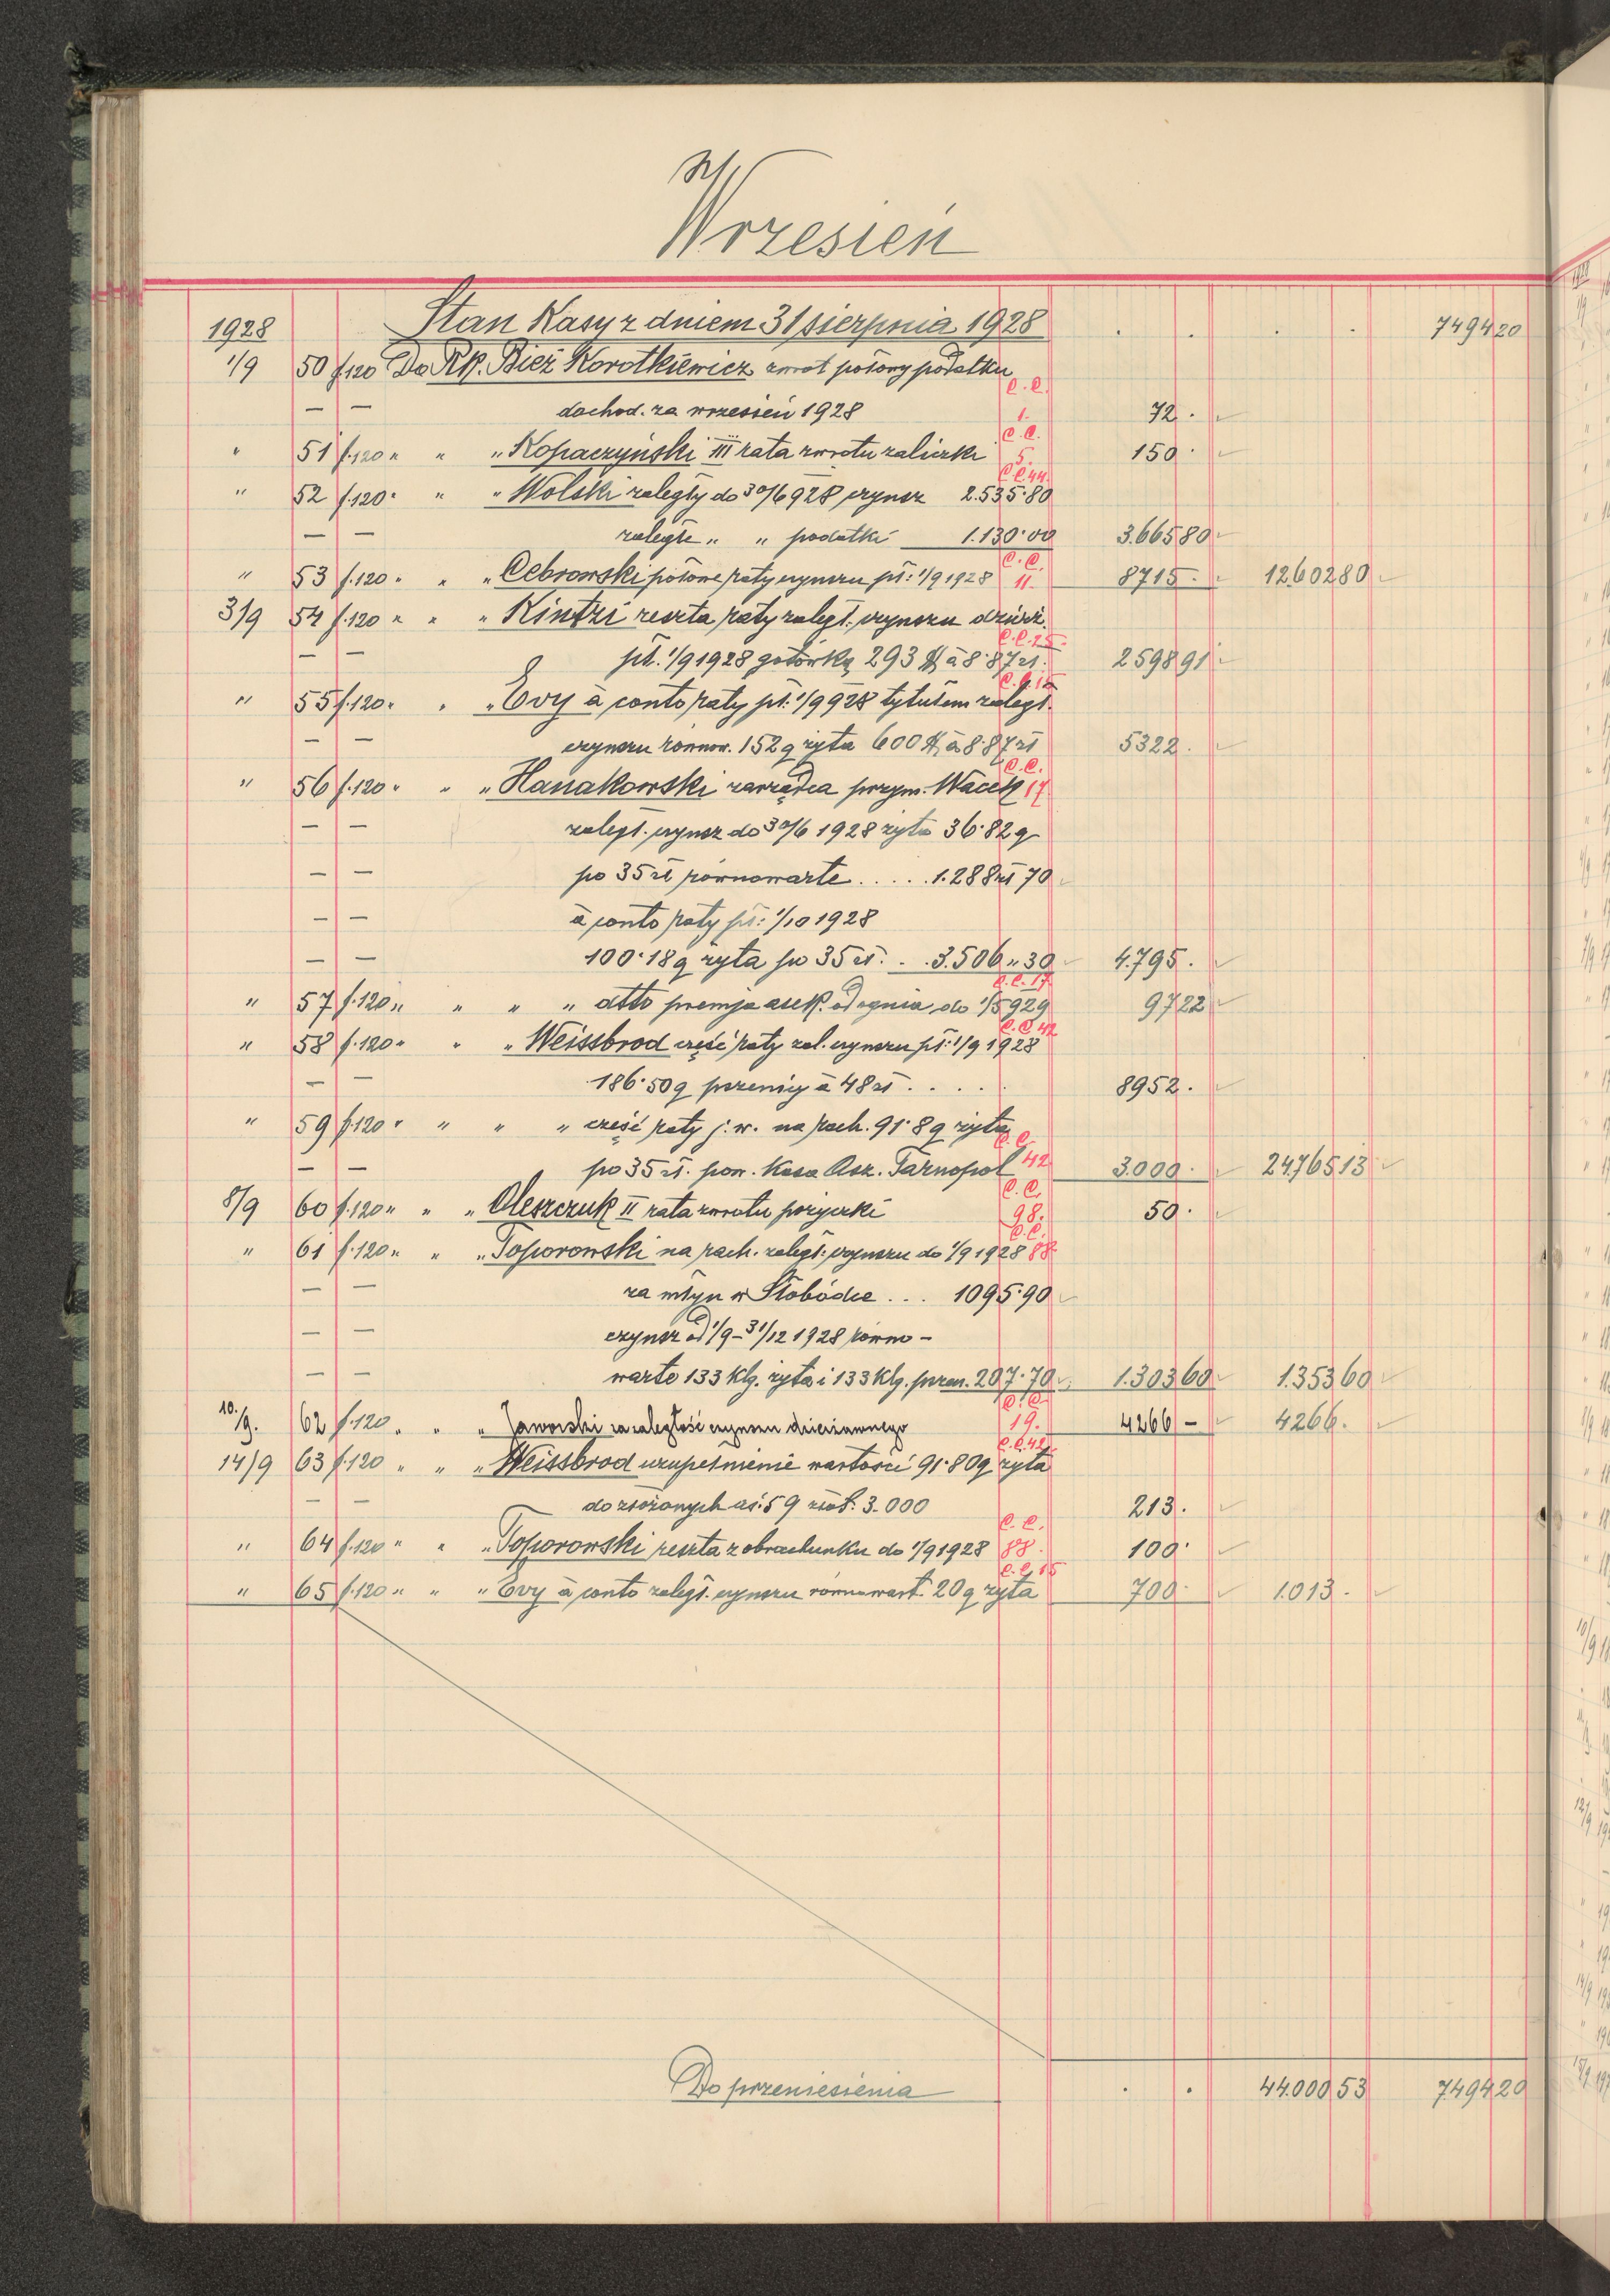 Wrzesień
1928 Stan Kasy z dniem 31 sierpnia 1928 . . . . 7494 20
1/9 50 f.120 Do Rk. Bież Korotkiewicz zwrot połowy podatku
— — dochod. za wrzesień 1928 C.C. 1. 72 .
" 51 f.120 " " " Kopaczyński III rata zwrotu zaliczki C.C. 5. 150 .
" 52 f.120 " " " Wolski zaległy do 30/6 928 czynsz C.C. 44. 2.535·80
— — zaległe " " podatki 1.130·00 3.665 80
" 53 f.120 " " " Cebrowski połowę raty czynszu pł: 1/9 1928 C.C. 11. 8715 . 12.602 80
3/9 54 f.120 " " " Kintzi reszta raty zaległ. czynszu dzierż.
— — pł. 1/9 1928 gotówką 293 $ à 8·87 zł. C.C. 25. 2598 91
" 55 f.120 " " " Evy à conto raty pł: 1/9 928 tytułem zaległ. C.C. 15
— — czynszu równow. 152 q żyta 600 $ à 8·87 zł 5322 .
" 56 f.120 " " " Hanakowski zarządca przym. Wacek C.C. 17
— — zaległ. czynsz do 30/6 1928 żyto 36·82 q
— — po 35 zł równowarte . . . . . 1.288 zł 70
— — à conto raty pł: 1/10 1928
— — 100·18 q żyta po 35 zł. . . 3.506 " 30 4.795 .
" 57 f.120 " " " " dtto premja asek. od ognia do 1/5 929 C.C. 17. 97 22
" 58 f.120 " " " Weissbrod część raty zal. czynszu pł: 1/9 1928 C.C 42
— — 186·50 q pszenicy à 48 zł . . . . 8952 .
" 59 f.120 " " " " część raty j. w. na rach. 91·8 q żyta
— — po 35 zł. pow. Kasa Osz. Tarnopol C.C. 42 3.000 . 24.765 13
8/9 60 f.120 " " " Oleszczuk II rata zwrotu pożyczki C.C. 98. 50 .
" 61 f.120 " " " Toporowski na rach. zaległ. czynszu do 1/9 1928 C.C. 88
— — za młyn w Słobódce . . . 1095·90
— — czynsz od 1/9 – 31/12 1928 równo -
— — warte 133 klg. żyta i 133 klg. pszen. 207·70 1.303 60 1.353 60
10./9. 62 f.120 " " " Jaworski za zaległość czynszu dzierżawnego C.C. 19. 4266 – 4266 .
14/9 63 f.120 " " " Weissbrod uzupełnienie wartości 91·80 q żyta C.C. 42.
— — do złożonych ad. 59 złot. 3.000 213 .
" 64 f.120 " " " Toporowski reszta z obrachunku do 1/9 1928 C.C. 88. 100 .
" 65 f.120 " " " Evy à conto zaległ. czynszu równowart. 20 q żyta C.C. 15 700 . 1.013 .
Do przeniesienia . . 44.000 53 7.494 20